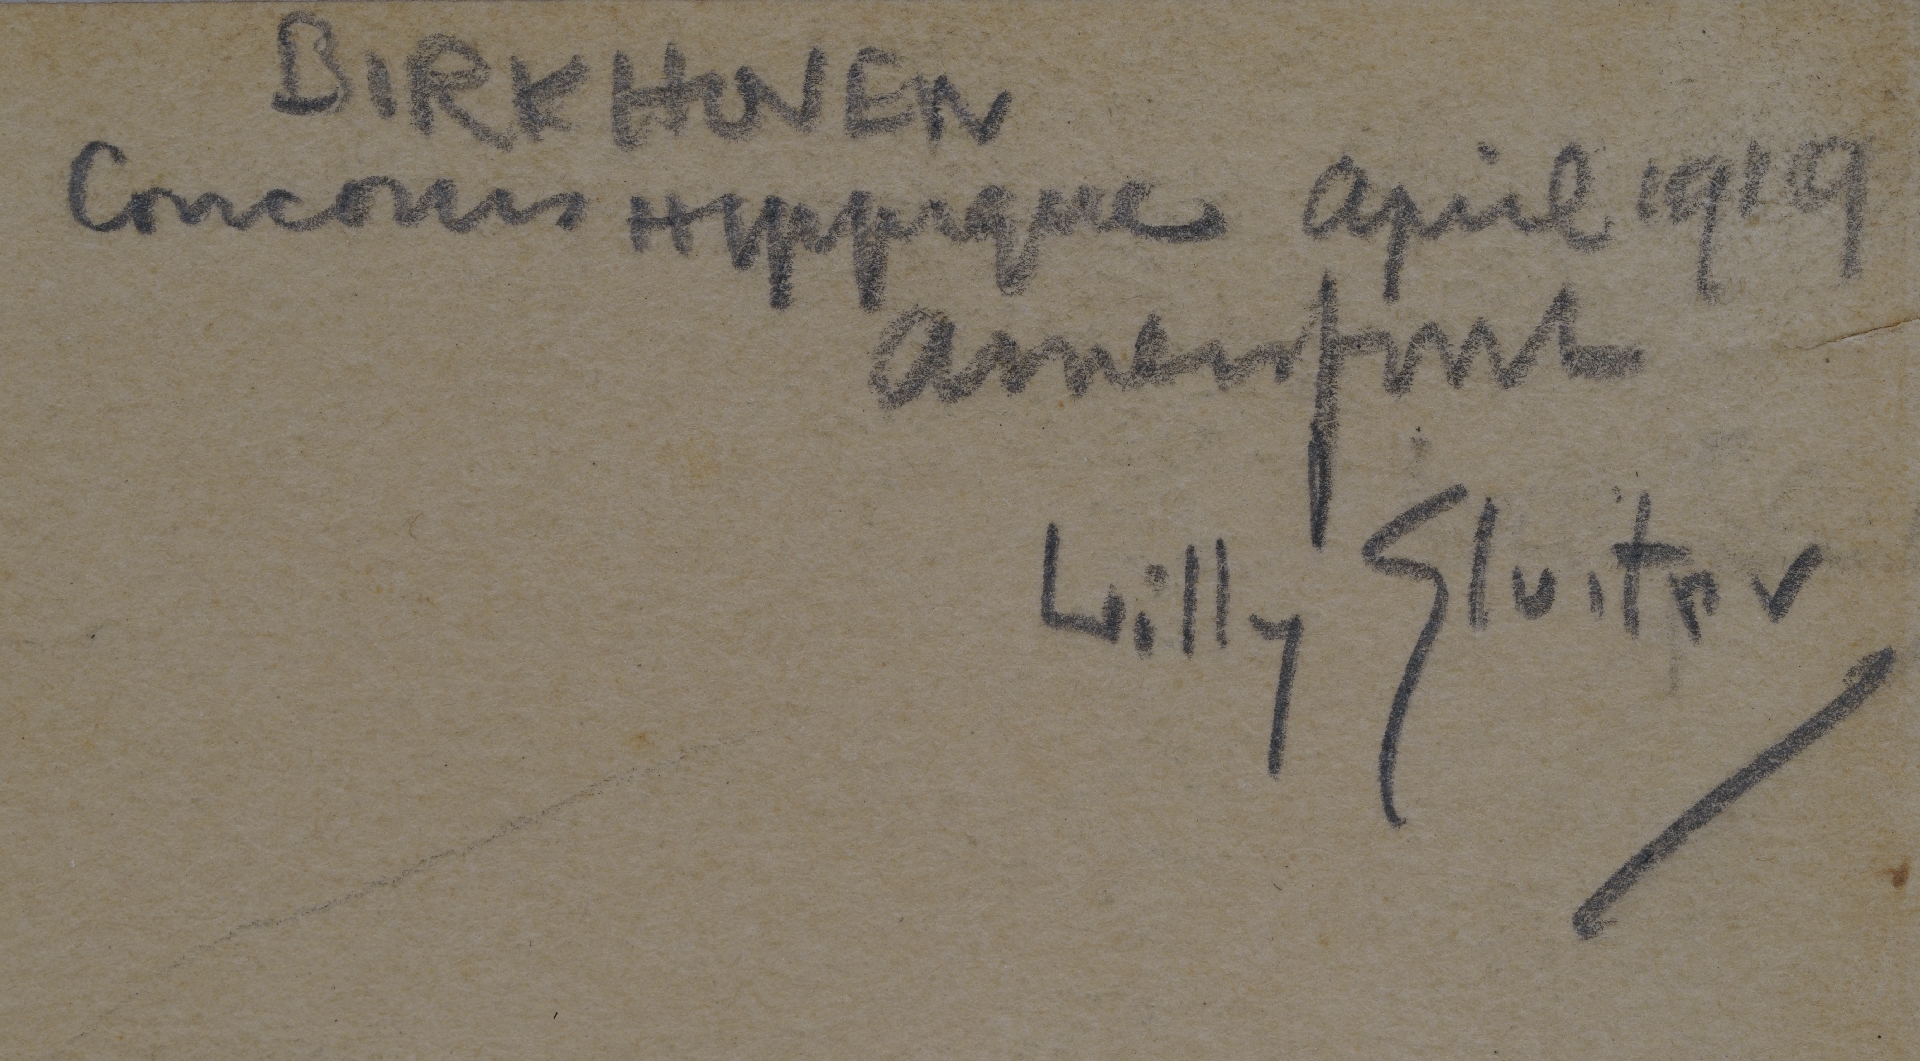 BIRKHOVEN
Concours Hippique april 1919
Amersfoort
Willy Sluiter